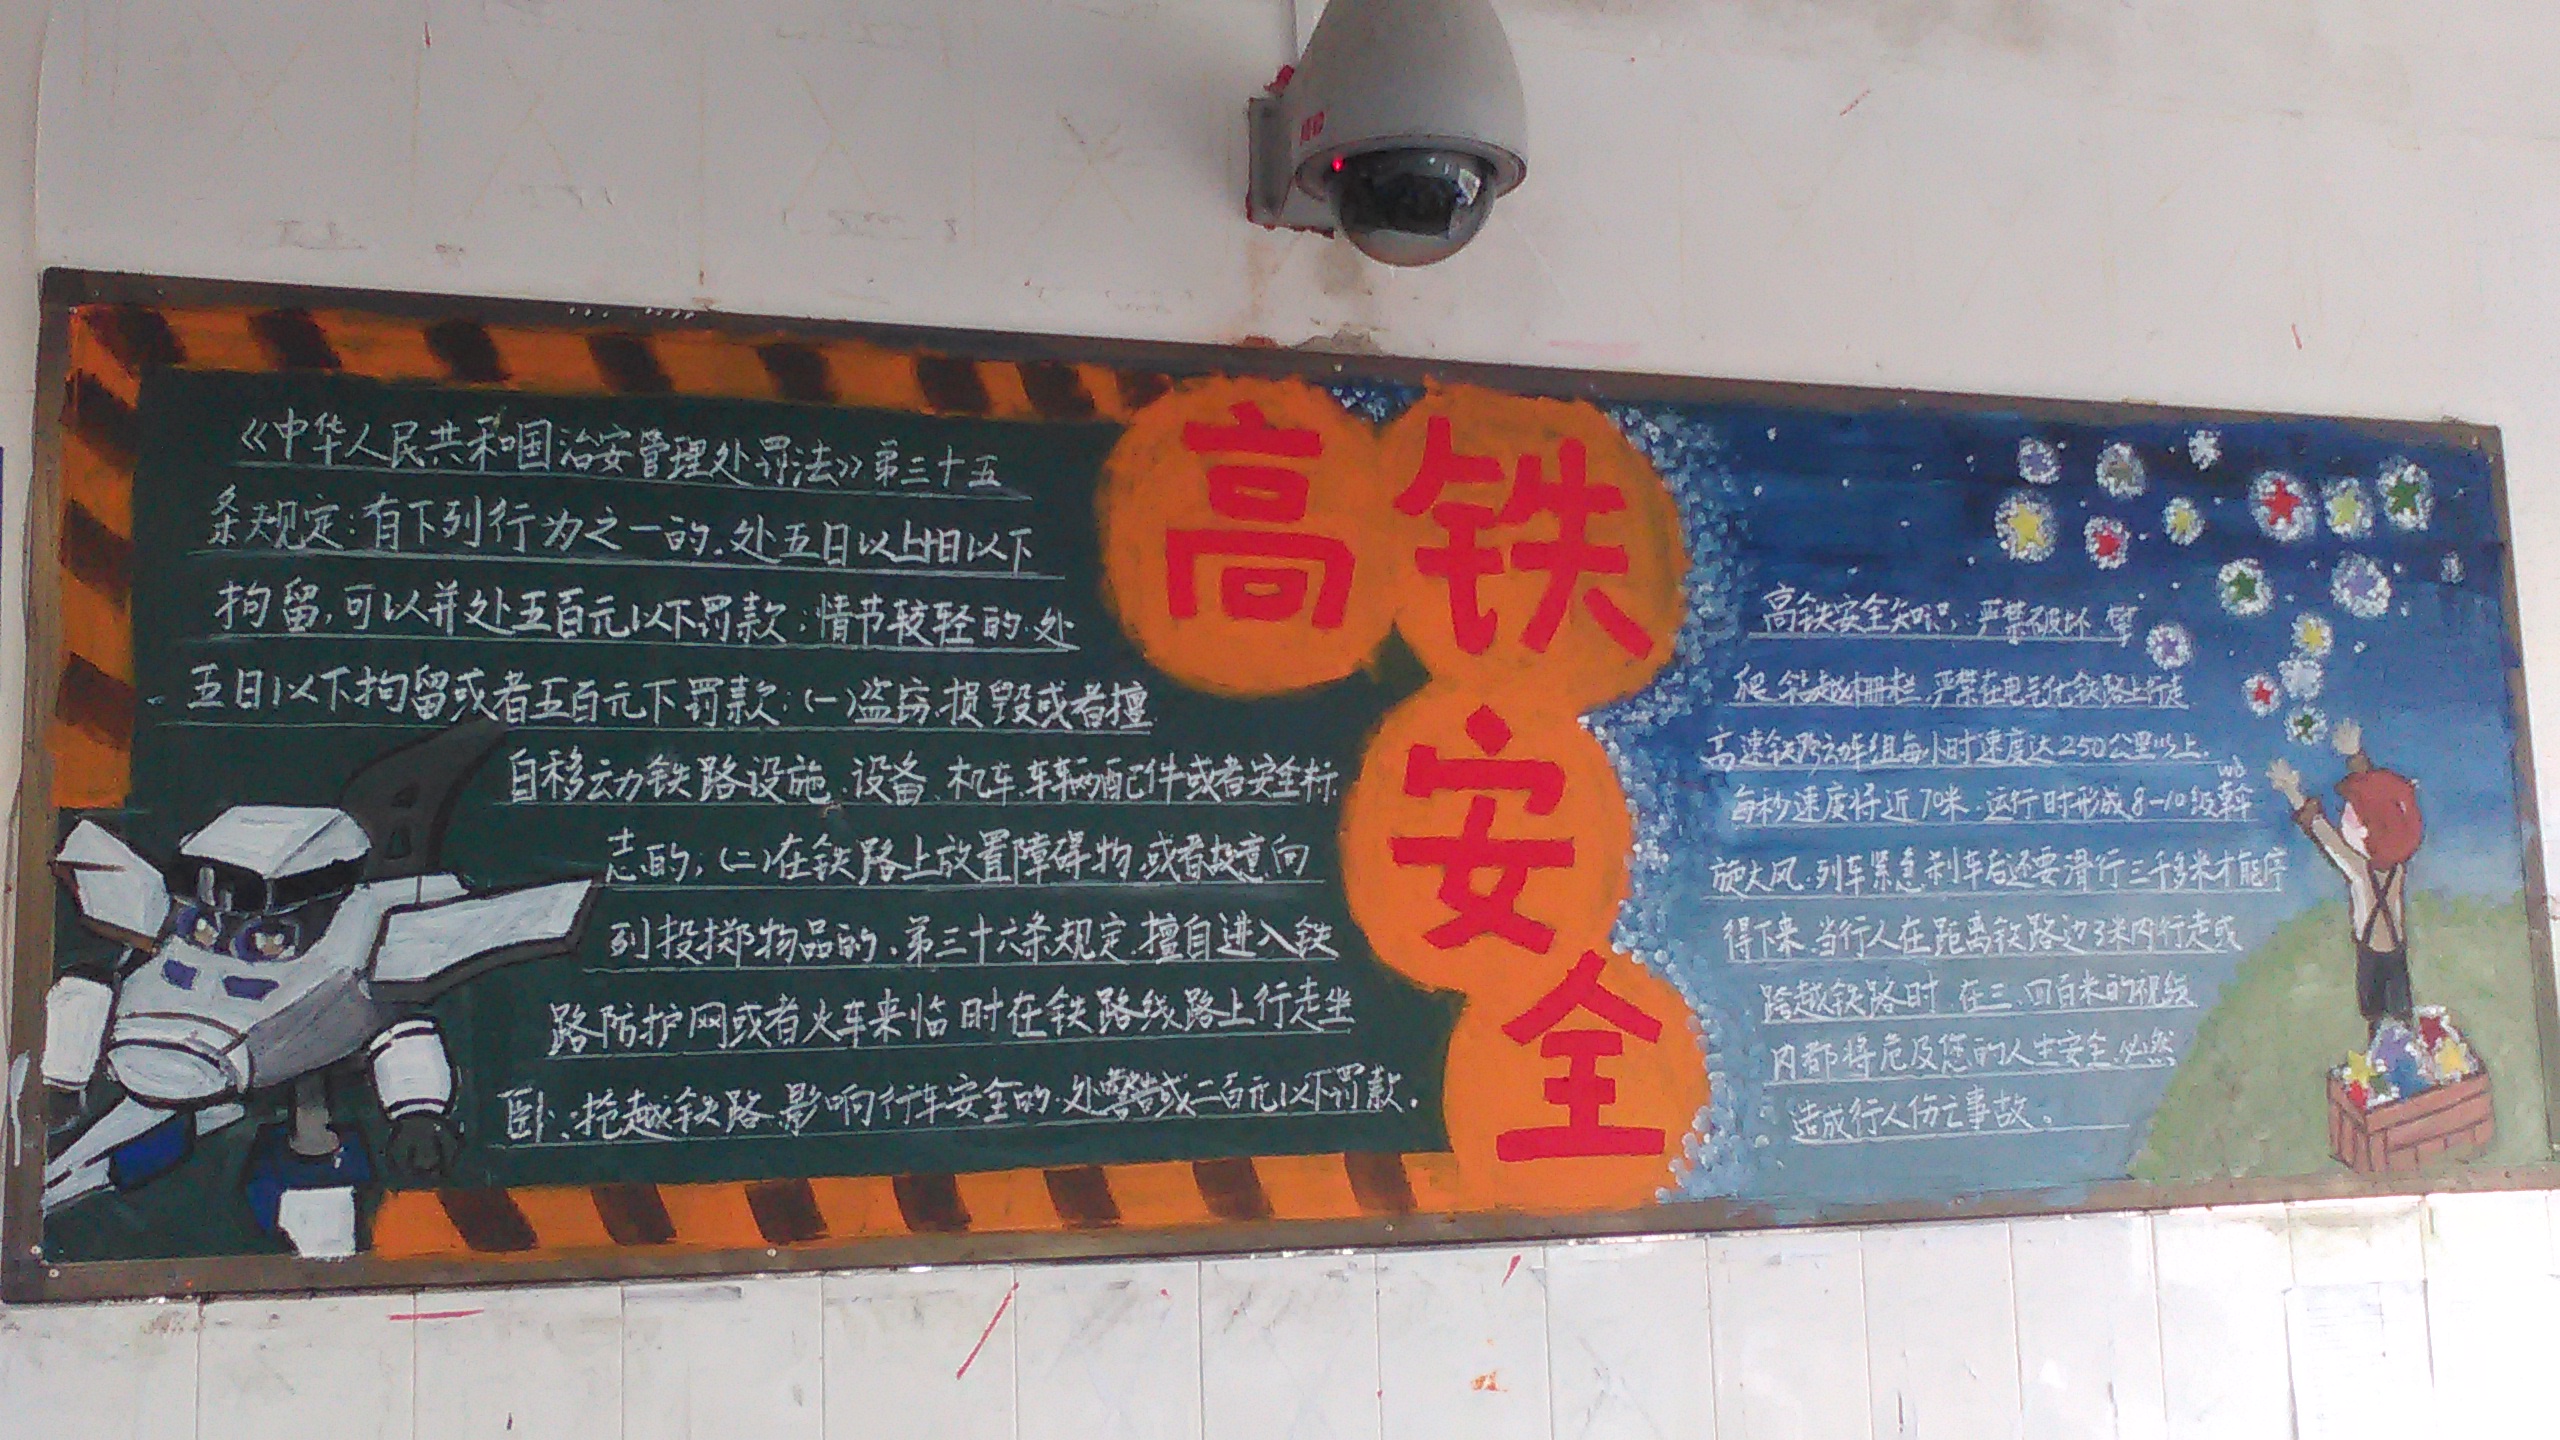 高铁安全
《中华人民共和国治安管理处罚法》第三十五
条规定:有下列行为之一的.处五日以上十日以下
拘留,可以并处五百元以下罚款;情节较轻的.处
五日以下拘留或者五百元下罚款:(一)盗窃.损毁或者擅
自移动铁路设施.设备、机车.车辆配件或者安全标
志的;(二)在铁路上放置障碍物.或者故意向
列投掷物品的.第三十六条规定.擅自进入铁
路防护网或者火车来临时在铁路线路上行走坐
卧、抢越铁路.影响行车安全的.处警告或二百元以下罚款.
高铁安全知识:严禁破坏 攀
爬 钻越栅栏.严禁在电气化铁路上行走
高速铁路动车组每小时速度达250公里以上.
每秒速度将近70米.运行时形成8-10级
wo
旋大风.列车紧急刹车后还要滑行三千多米才能停
得下来.当行人在距离铁路边3米内行走或
跨越铁路时 在三、四百米的视线
内都将危及您的人生安全.必然
造成行人伤亡事故。